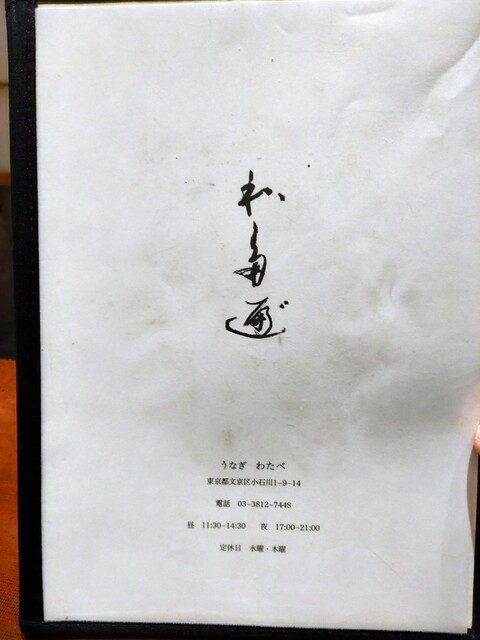 うなぎ　わたべ
東京都文京区小石川1-9-14
電話　03-3812-7448
昼　11:30-14:30　　夜　17:00-21:00
定休日　水曜・木曜